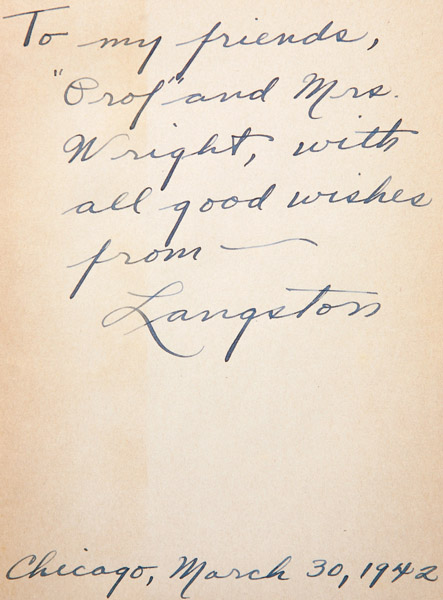 To my friends,
"Prof" and Mrs.
Wright, with
all good wishes
from —
Langston
Chicago, March 30, 1942